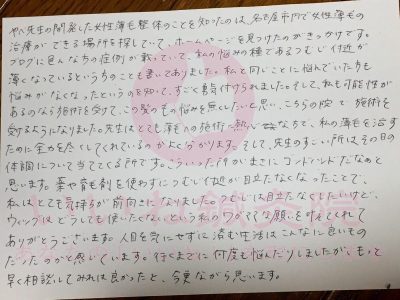 先生の開発した女性薄毛整体のことを知ったのは、名古屋市内で女性薄毛の
治療ができる場所を探していて、ホームページを見つけたのがきっかけです。
ブログに色んな方の症例が載っていて、私の悩みの種であるつむじ付近が
薄くなっているというちのことも書いてありました。私と同じことに悩んでいた方も
悩みがなくなったというのを知って、すごく勇気付けられました。そして、私も可能性が
あるのなら施術を受けて、この髪のもの悩みを無くしたいと思い、こちらの院で施術を
受けるようになりました。先生はとても薄毛への施術に熱い方で、私の薄毛を治す
ために全力を尽くしてくれているのがよく分かります。そして、先生のすごい所はその日の
体調について当ててくる所です。こういった所がまさにゴッドハンドだなぁと
思います。薬や育毛剤を使わずにつむじ付近が目立たなくなったことで、
私はとても気持ちが前向きになりました。つむじは目立たなくしたいけど、
ウィッグはどうしても使いたくないという私のワガママな願いを叶えてくれて
ありがとうございます。人目を気にせずに済む生活はこんなに良いもの
だったのかと感じています。行くまでに何度も悩んだりしましたが、もって
早く相談してみれば良かったと、今更ながら思います。